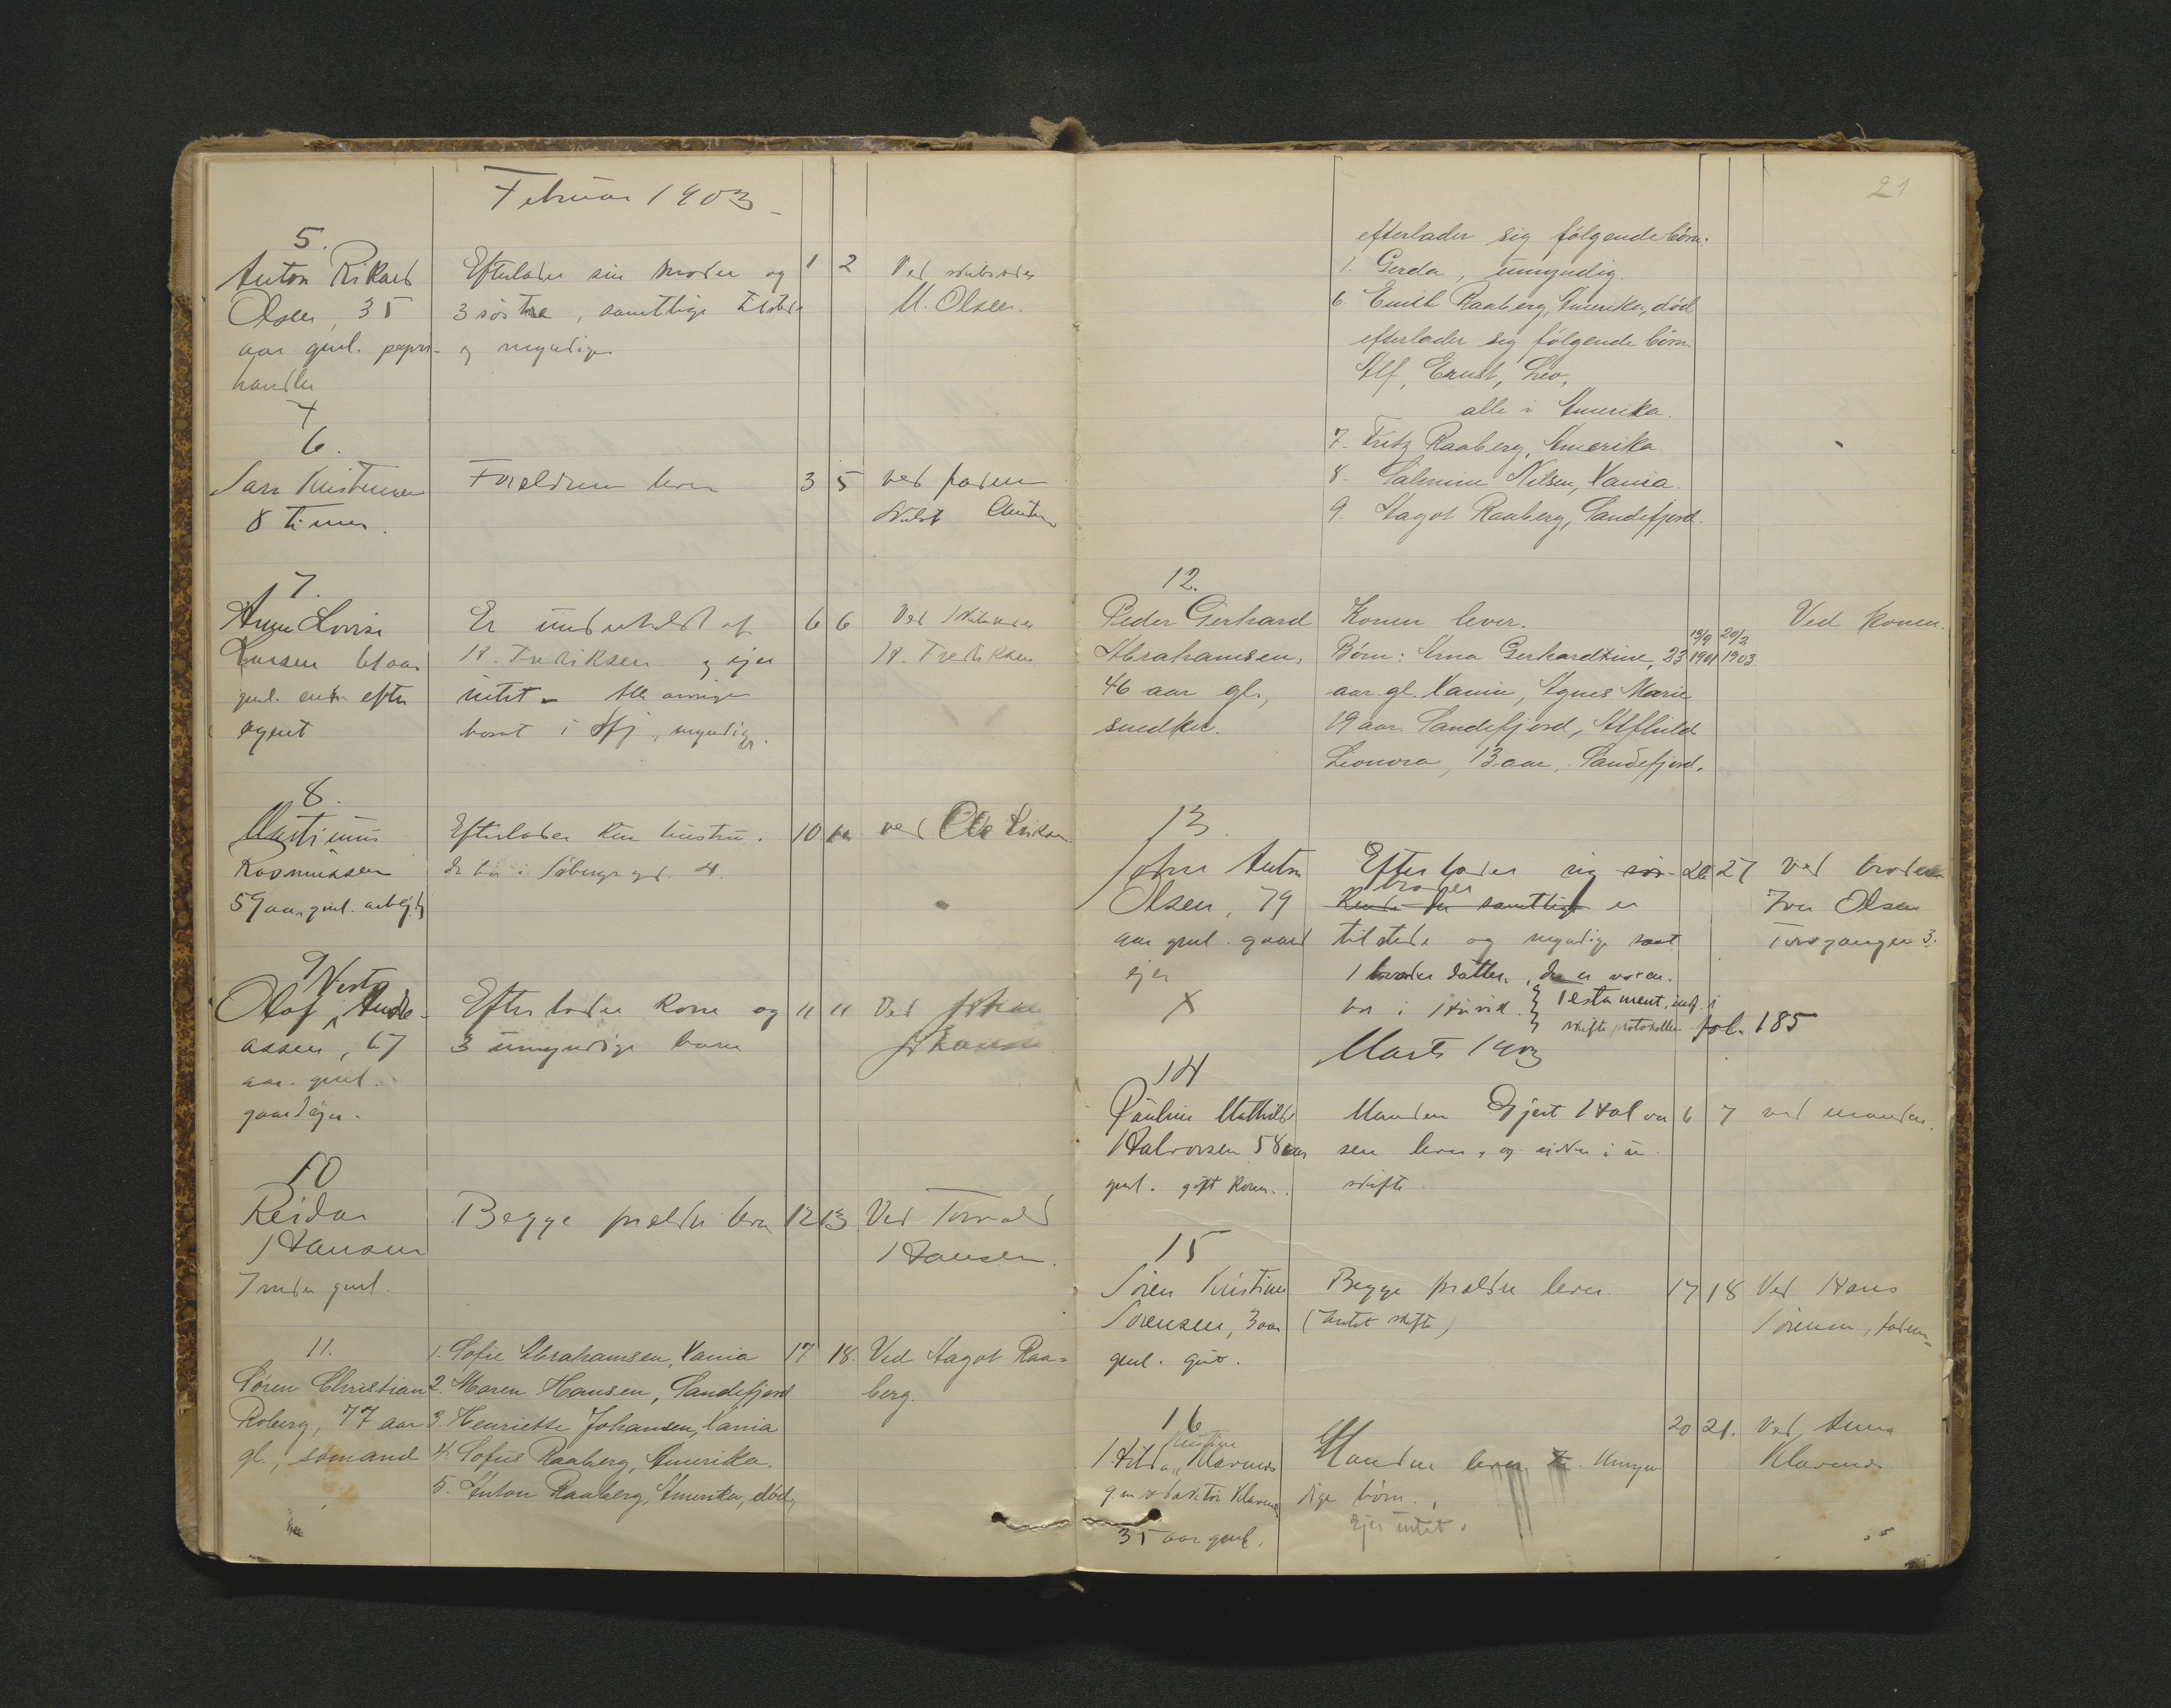 Februar 1903
5.
Anton Rikard
Olsen, 35
aar gml. papir-
handler
Efterlader sin moder og
3 søstre, samtlige tilstede
og myndige
1 2
Ved skibsreder
M. Olsen.
6.
Sara Kristensen
8 timer.
Forældrene lever
3 5
ved faderen
7.
Anne Lovise
Larsen 61 aar
gml. enke efter
agent
Er underholdt af
H. Fredriksen og ejer
intet - Alle arvinger
bosat i Sfj, myndige.
6 6
Ved Skibsreder
H. Fredriksen
8.
Martinus
Rasmussen
59 aar gml. arbejder
Efterlader kun hustru.
de bor i Søbergs gd. 4.
10
ved Ole Eriksen
9
Olaf Nesto Andre-
assen, 67
aar gml.
gaardejer.
Efterlader kone og
3 umyndige barn
11 11
Ved Johan
Johansen
10
Reidar
Hansen
7 mdr gml.
Begge forældre lever
12 13
Ved Torvald
Hansen.
11.
Søren Christian
Roberg, 77 aar
gl., sømand
1. Sofie Abrahamsen, Xania
2. Maren Hansen, Sandefjord
3. Henriette Johansen, Xania
4. Sofus Raaberg, Amerika.
5. Anton Raaberg, Amerika, død,
17 18.
Ved Aagot Raa=
berg.
21
efterlader sig følgende børn:
1. Gerda, umyndig.
6. Emil Raaberg, Amerika, død
efterlader sig følgende børn:
Alf, Ernst, Leo,
alle i Amerika.
7. Fritz Raaberg, Amerika
8. Salmine Nilsen, Xania.
9. Aagot Raaberg, Sandefjord.
12.
Peder Gerhard
Abrahamsen,
46 aar gl.,
snedker.
Konen lever.
Børn: Anna Gerhardtine, 23
aar gl. Xania, Agnes Marie
19 aar Sandefjord, Alfhild
Leonora, 13 aar, Sandefjord.
19/9 1901
20/2 1903
Ved konen.
13.
Johan Anton
Olsen, 79
aar gml. gaard
ejer
X
Efterlader sig søs-
kende der samtlige er
broder
tilstede og myndige samt
1 broder datter, der er
bor i
Testament, indf. i
skifteprotokollen fol. 185
26 27
ved broderen
Iver Olsen
Torvgangen 3.
Marts 1903
14
Pauline Mathilde
Halvorsen 58 aar
gml. gift kone.
Manden Gjert Halvor
sen lever, og sidder i u
skifte
6 7
ved manden.
15
Søren Kristian
Sørensen, 3 aar
gml. gut.
Begge forældre lever.
(Intet skifte)
17 18
Ved Hans
Sørensen, faderen
16
Hilda Kristine Klavenes
g. m. redaktør Klavenes
35 aar gml.
Manden lever. Umyn-
dige børn.
Ejer intet.
20 21.
Ved Anna
Klavenes.